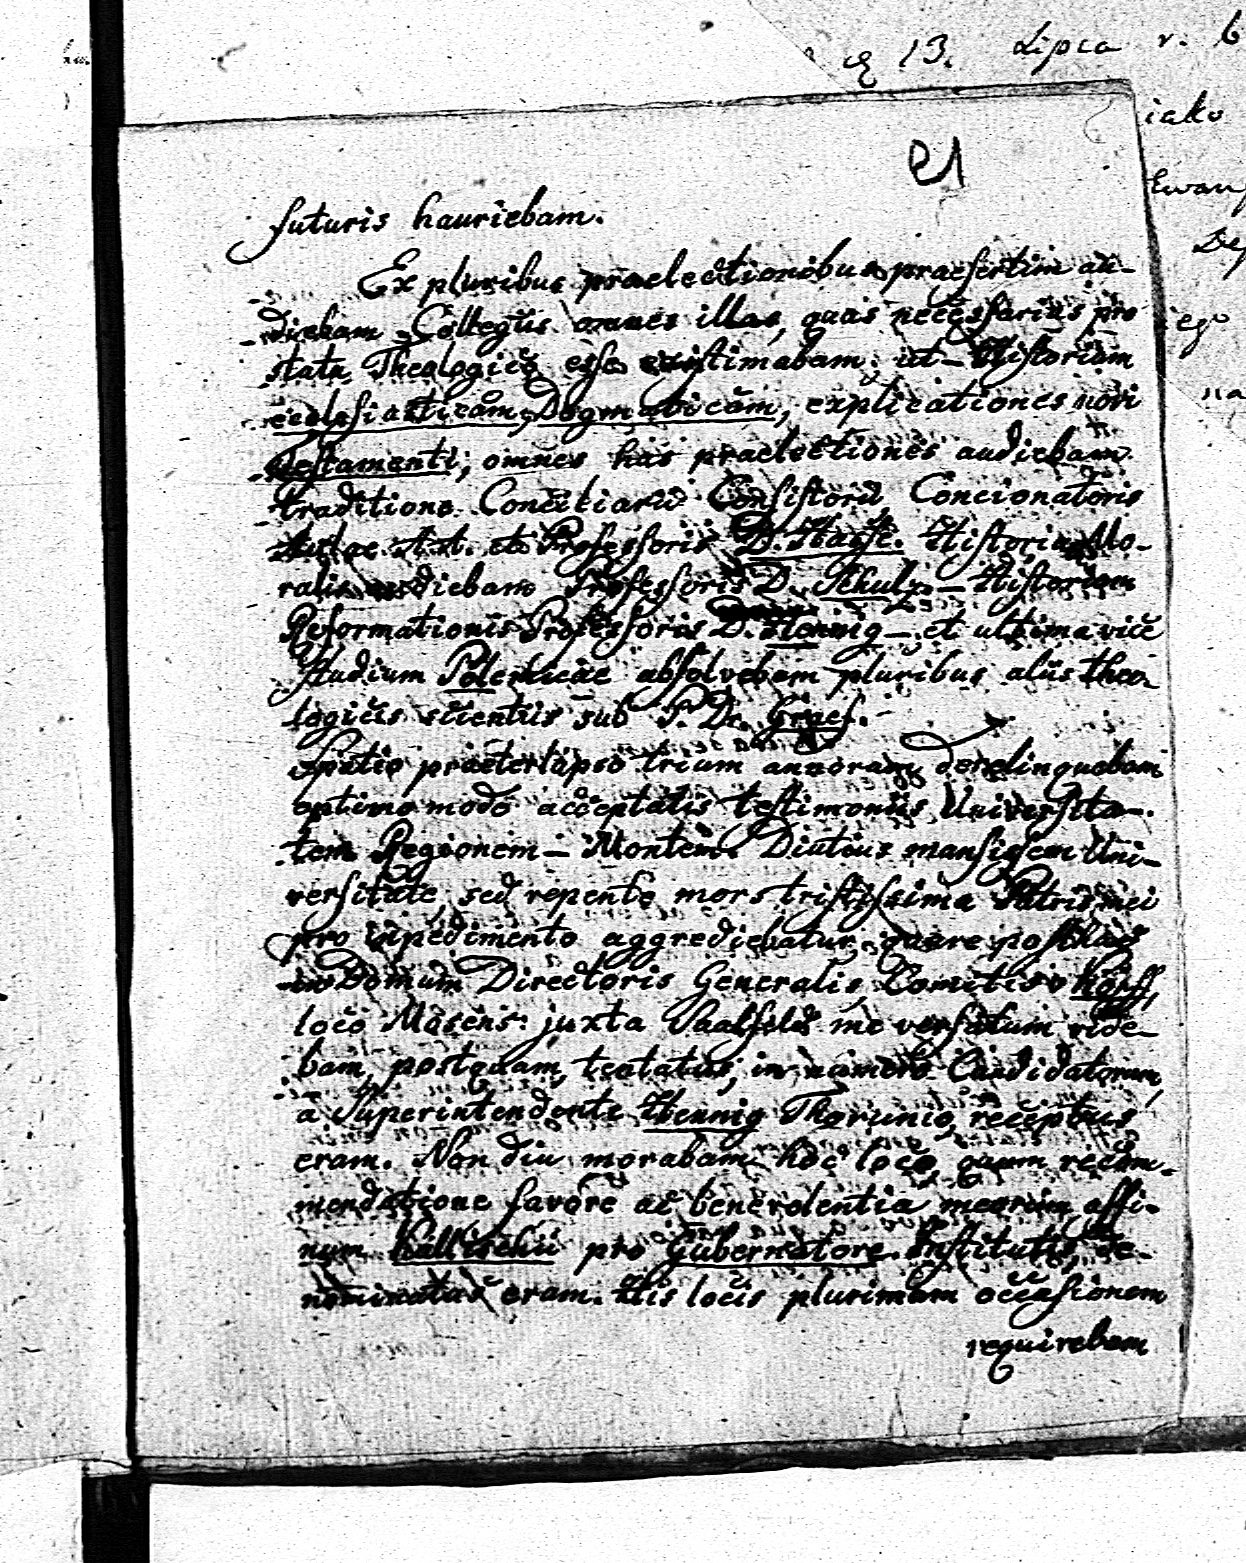 13. Lipca r. b
iako
21
Ewan
futuris hauriebam.
De
Ex pluribus praelectionibus praesertim au-
diebam Collegiis omnes illas, quas necessarias pro
iego
statu Theologico esse existimabam: ut - Historiam
ecclesiasticam, Dogmaticam, explicationes novi
na
Testamenti; omnes has praelectiones audiebam
traditione Consiliarii Consistorii, Concionatoris
Aulae et Professoris D. Hasse. Historia Mo-
ralia audiebam Professoris D. Schulz. - Historiam
Reformationis Professoris D. Hennig - et ultima vice
Studium Polemicae absolvebam pluribus aliis theo-
logicis scientiis sub P. Dr. Graef.
Spatio praeterlapso trium annorum derelinquebam
optimo modo acceptatis testimoniis Universita-
tem Regionem - Montem. Diutius mansissem Uni-
versitate, sed repente mors tristissima Patris mei
pro inpedimento aggrediebatur, quare posthac
in Domum Directoris Generalis Comitis
loco juxta Saalfeld me versatum vide-
bam, postquam, tentatus, in numero Candidatorum,
a Superintendente Hennig Thorunio receptus
eram. Non diu morabam hoc loco, quum recom-
mendatione favore ac benevolentia meorum affi-
num Kallischii pro Gubernatore Institutis, de-
nominatus eram. His locis plurimam occasionem
requirebam